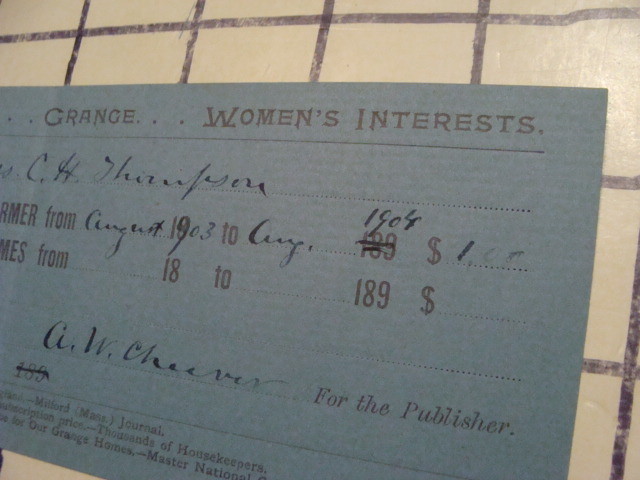 . . GRANGE. . . WOMEN'S INTERESTS.
s. C. H. Thompson
RMER from August 1903 to Aug. 1904 189 $ 1.00
MES from 18 to 189 $
A. W. Cheever
189 For the Publisher.
Milford (Mass.) Journal.
subscription price.—Thousands of Housekeepers.
for Our Grange Homes.—Master National